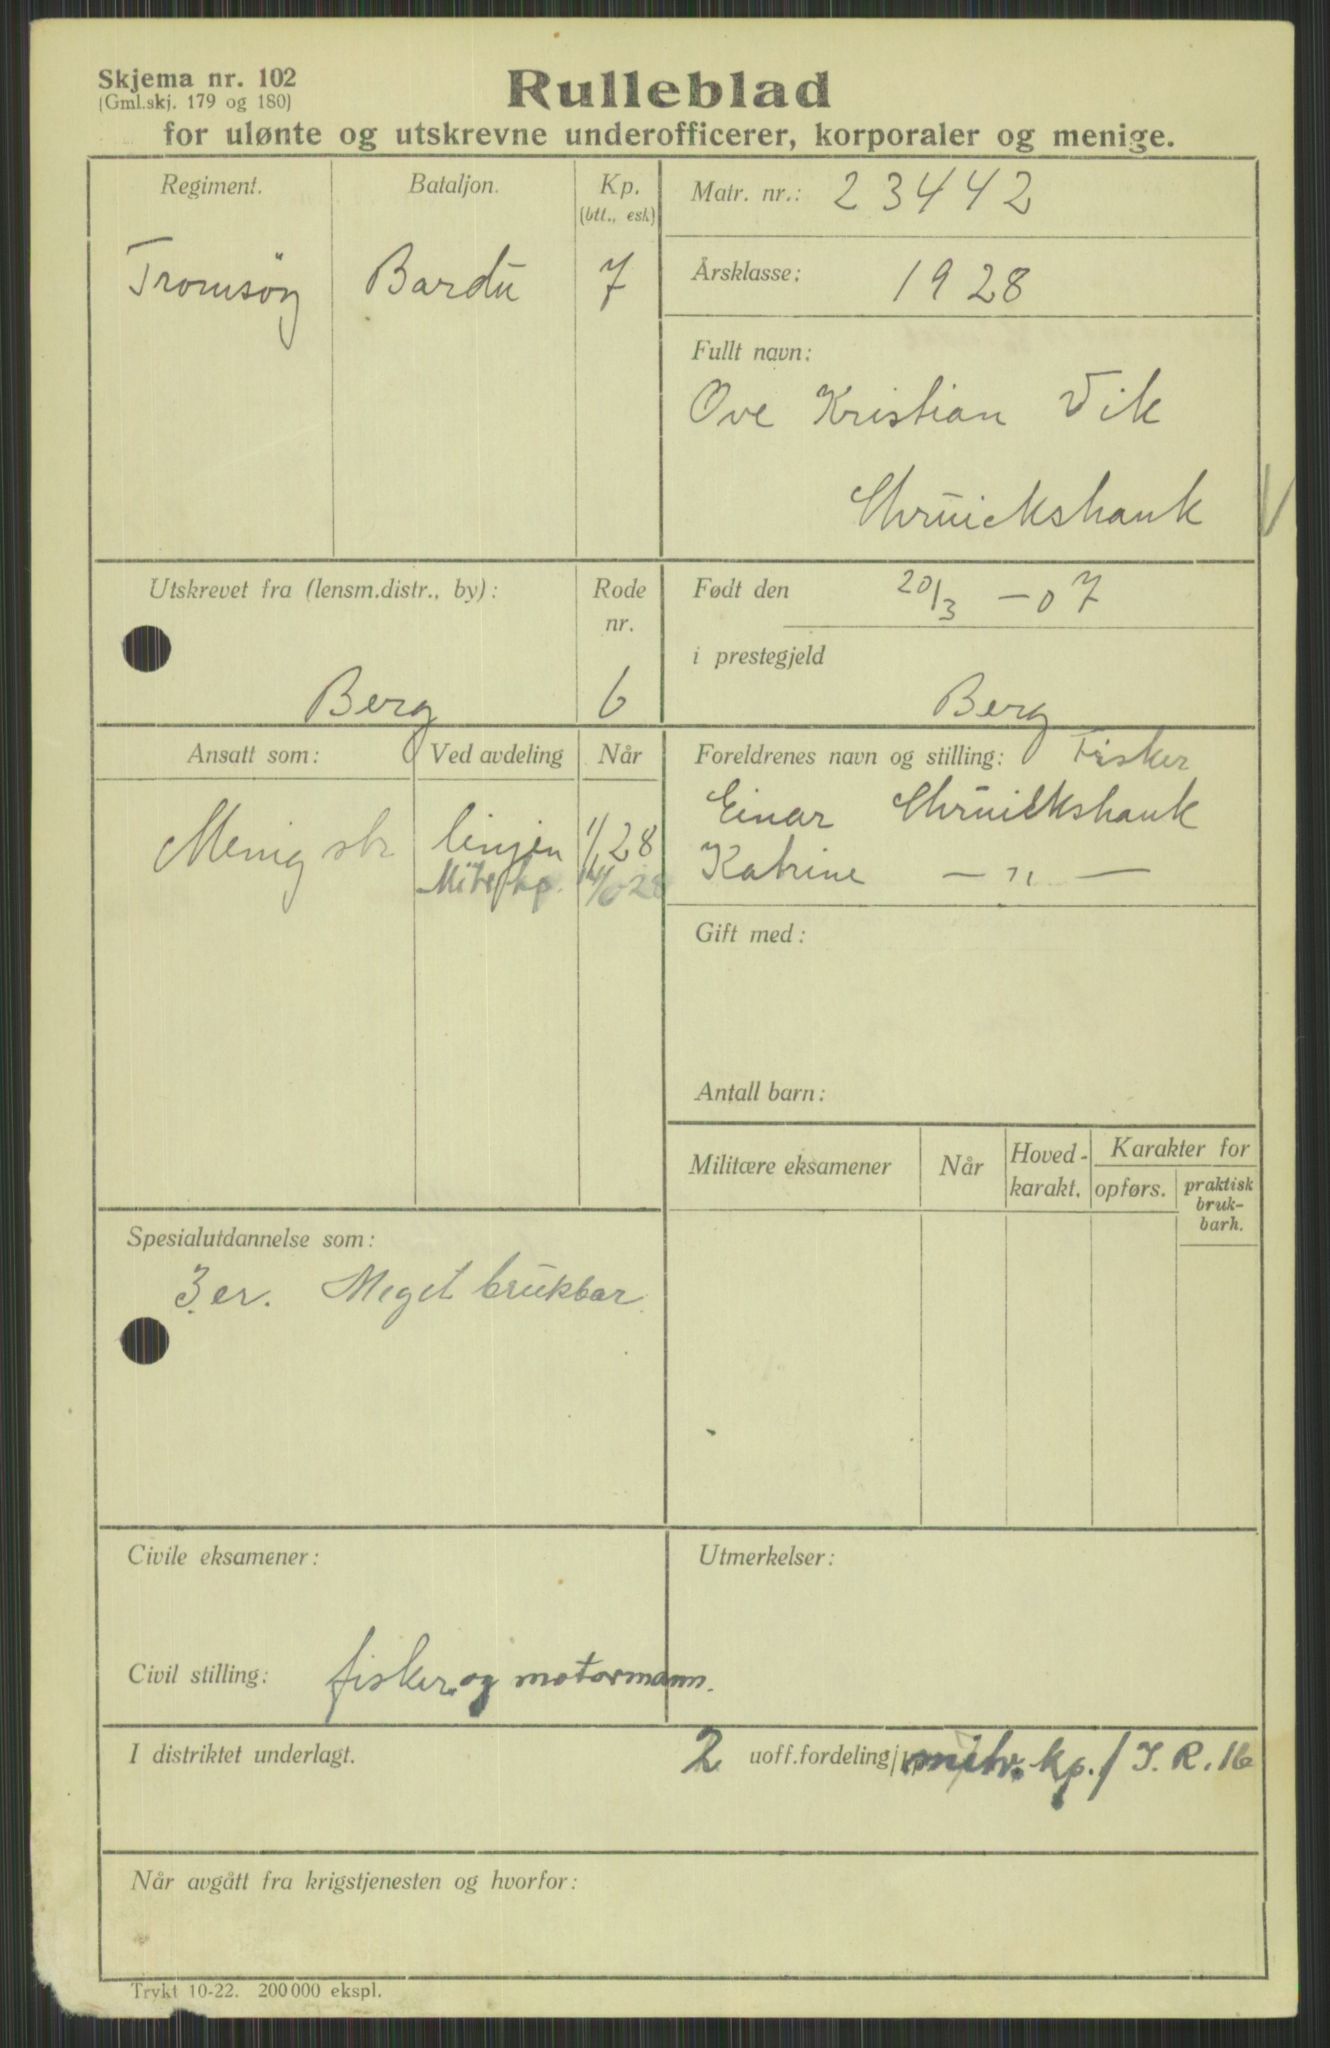 Skjema nr. 102
(Gml.skj. 179 og 180)
Rulleblad
for ulønte og utskrevne underofficerer, korporaler og menige.
Regiment. Bataljon. Kp. (btt., esk)
Tromsøy Bardu 7
Matr. nr.: 23442
Årsklasse: 1928
Fullt navn:
Ove Kristian Vik
Chruickshank
Utskrevet fra (lensm.distr., by): Rode nr.
Berg 6
Født den 20/3 - 07
i prestegjeld
Berg
Ansatt som: Ved avdeling Når
Menig str linjen 1/1 28
Mitr.kp. 28
Foreldrenes navn og stilling: Fisker
Einar Chruickshank
Katrine — " —
Gift med:
Antall barn:
Militære eksamener Når Hoved-karakt. Karakter for
opførs. praktisk bruk-barh.
Spesialutdannelse som:
3er. Meget brukbar.
Civile eksamener:
Utmerkelser:
Civil stilling: fisker og motormann.
I distriktet underlagt. 2 uoff.fordeling mitr. kp./I.R.16
Når avgått fra krigstjenesten og hvorfor:
Trykt 10-22. 200 000 ekspl.